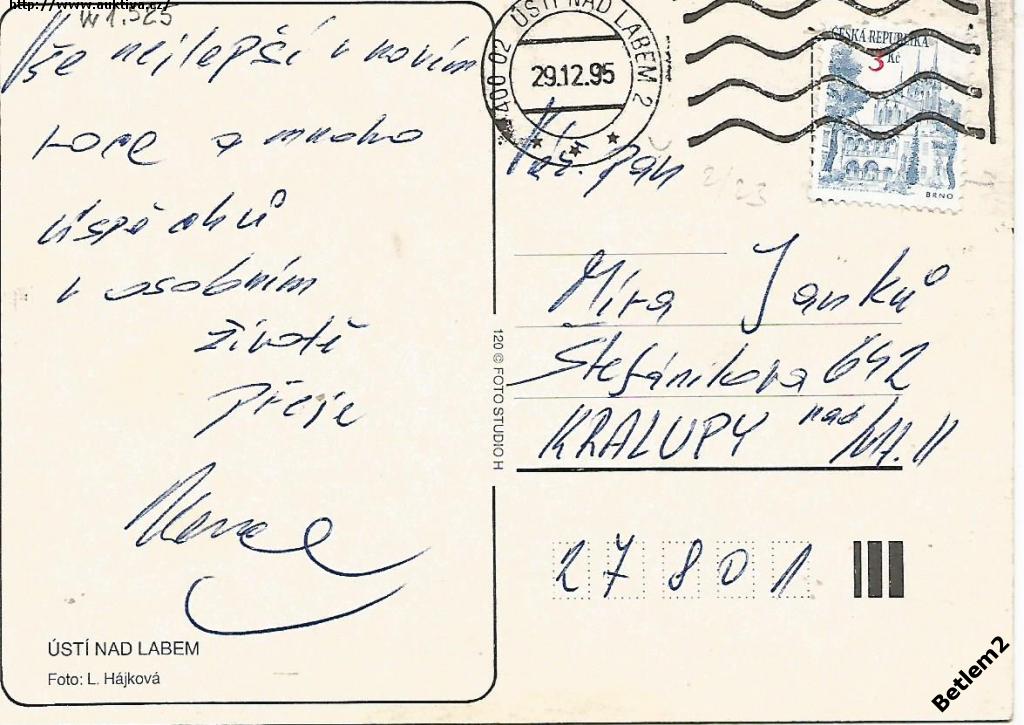 http://www.auktiva.cz/
W1.525
Vše nejlepší v novém
roce a mnoho
úspěchů
v osobním
životě
přeje
ÚSTÍ NAD LABEM
Foto: L. Hájková
120 © FOTO STUDIO H
400 02 ÚSTÍ NAD LABEM 2
29.12.95
ČESKÁ REPUBLIKA
3 Kč
BRNO
Váš. pan
2/23
Míra Janků
Štefánikova 642
KRALUPY nad Vlt. II
27801
Betlem2